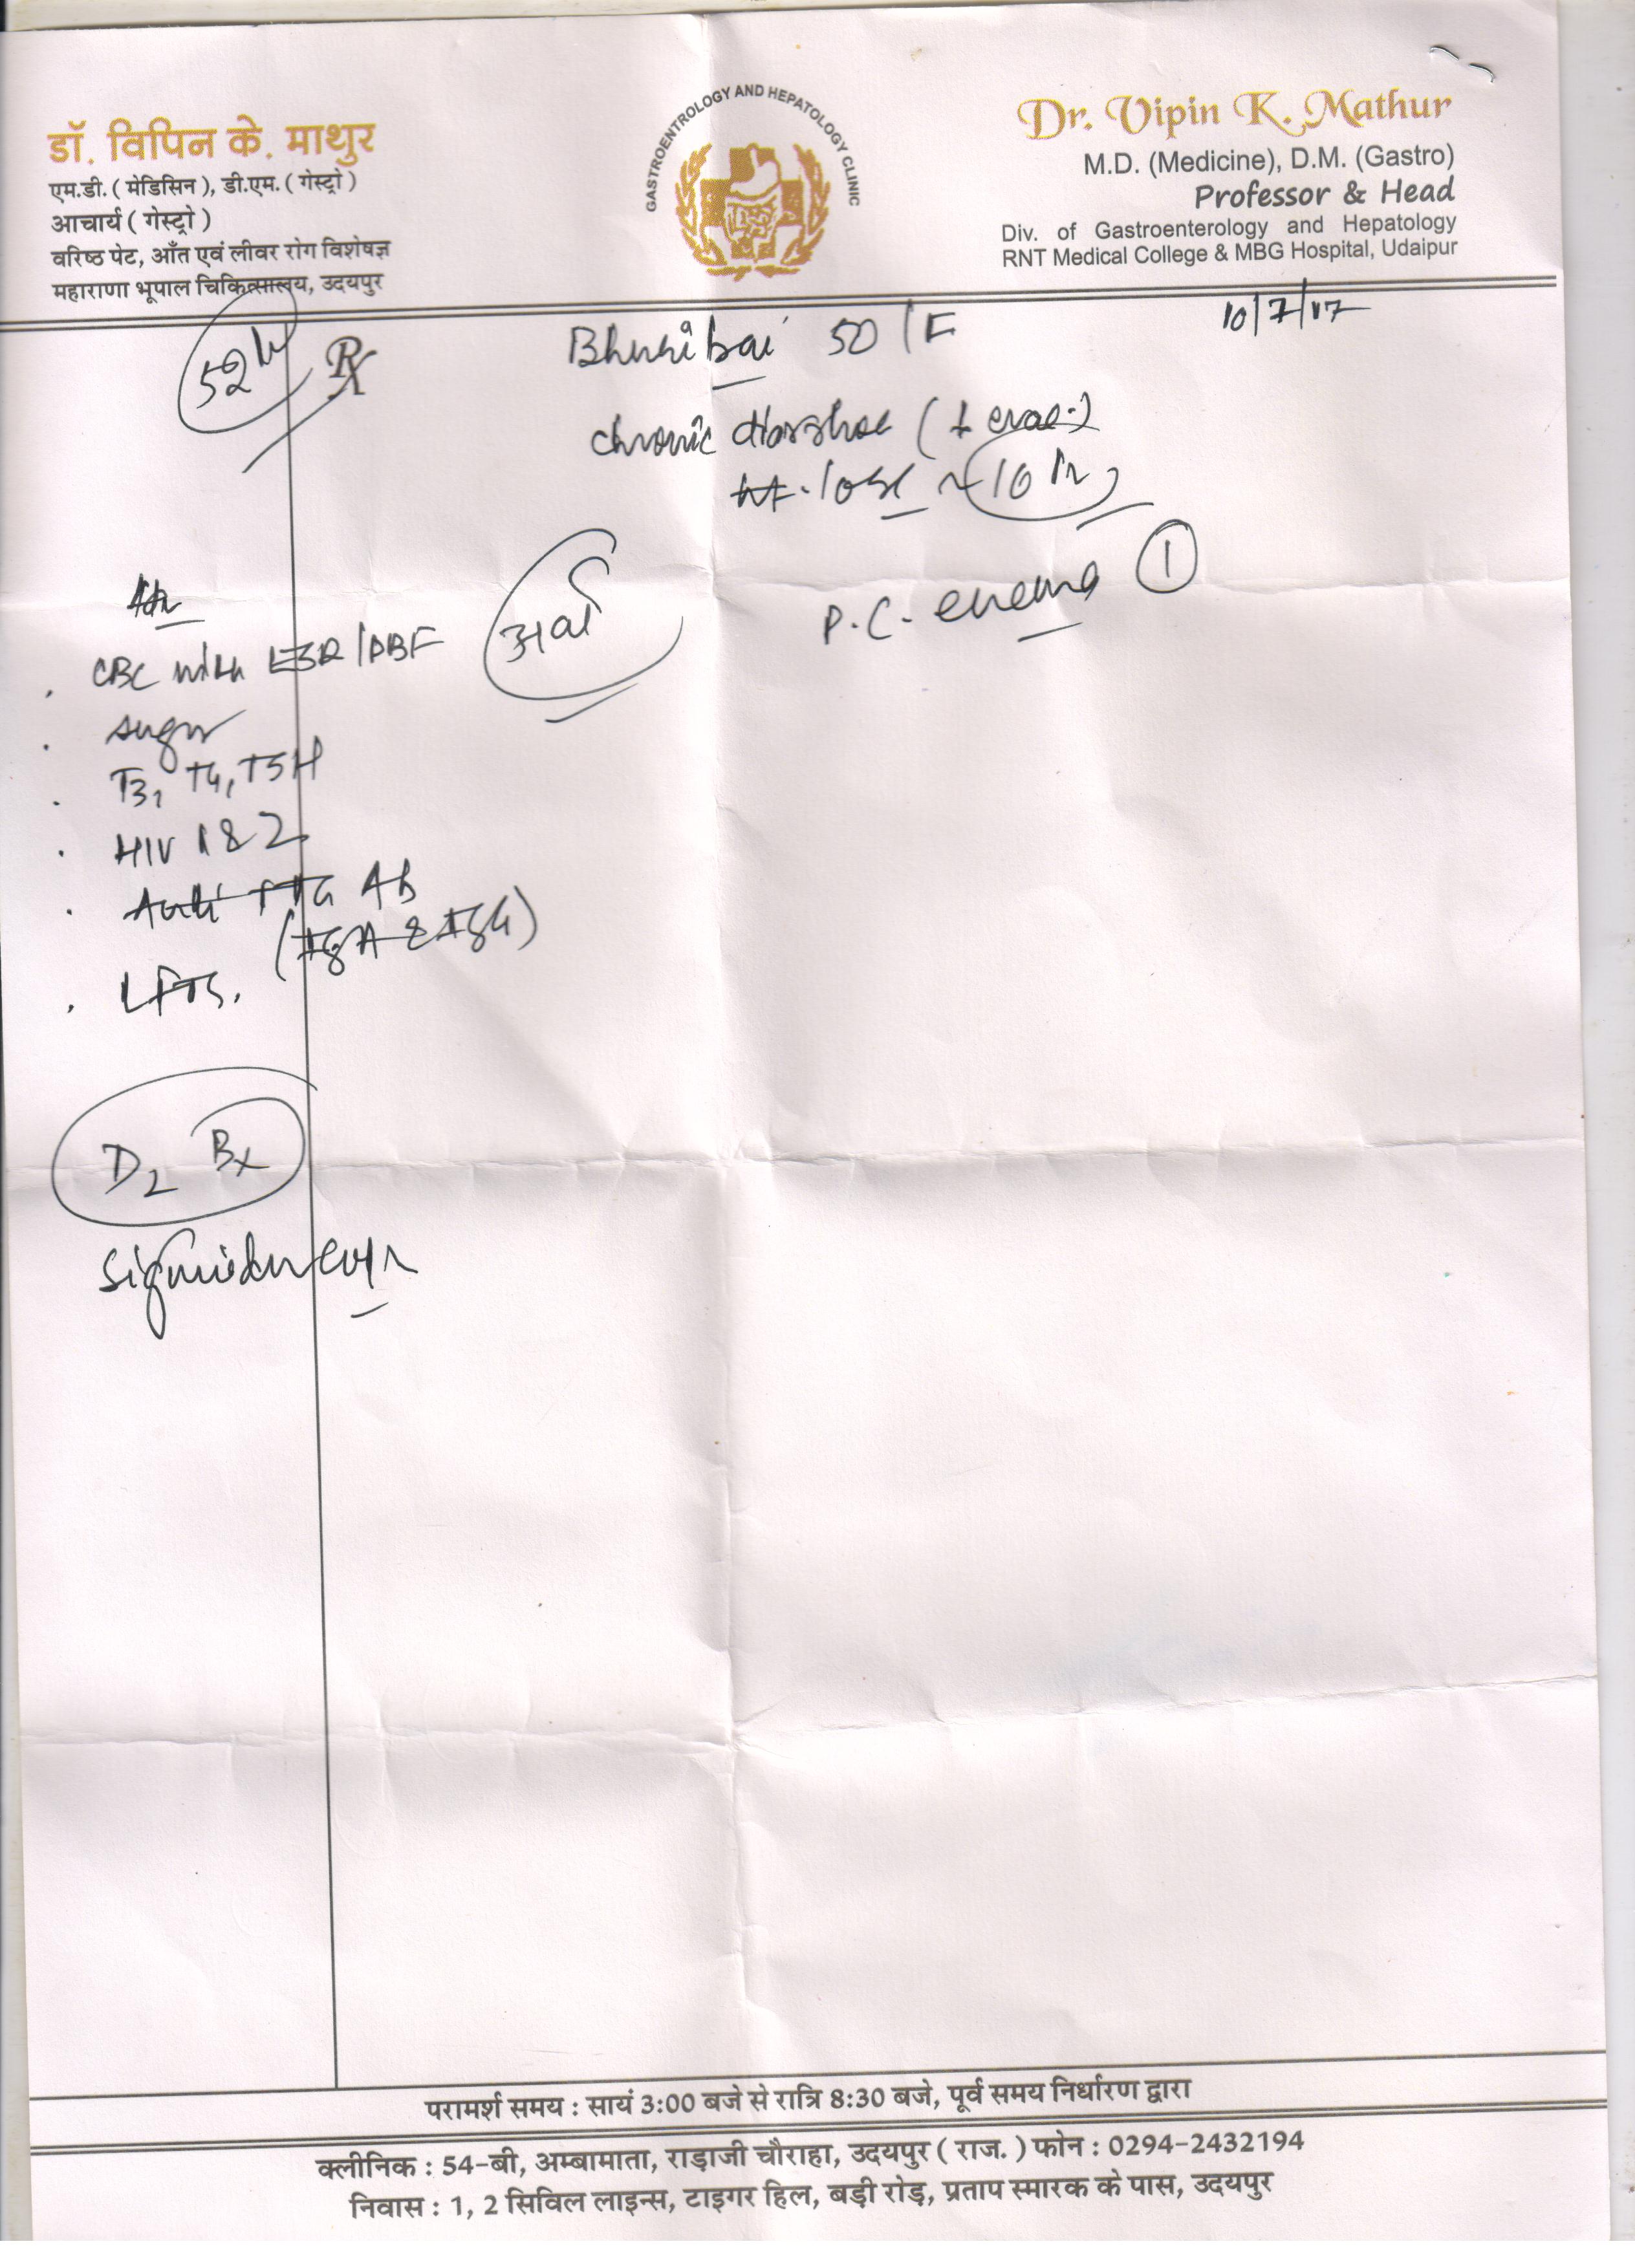 डॉ. विपिन के. माथुर
एम.डी. ( मेडिसिन ), डी.एम. ( गेस्ट्रो )
आचार्य ( गेस्ट्रो )
वरिष्ठ पेट, आँत एवं लीवर रोग विशेषज्ञ
महाराणा भूपाल चिकित्सालय, उदयपुर
GASTROENTROLOGY AND HEPATOLOGY CLINIC
Dr. Vipin K. Mathur
M.D. (Medicine), D.M. (Gastro)
Professor & Head
Div. of Gastroenterology and Hepatology
RNT Medical College & MBG Hospital, Udaipur
10/7/17
52
Rx
Bhuribai 50/F
chronic diarrhoea
wt. loss ~ 10
P.C. enema 1
CBC with ESR/PBF
sugar
T3, T4, TSH
HIV 1 & 2
Anti TTG Ab
(IgA & IgG)
LFTs.
D2 Bx
Sigmoidoscopy
परामर्श समय : सायं 3:00 बजे से रात्रि 8:30 बजे, पूर्व समय निर्धारण द्वारा
क्लीनिक : 54-बी, अम्बामाता, राड़ाजी चौराहा, उदयपुर ( राज. ) फोन : 0294-2432194
निवास : 1, 2 सिविल लाइन्स, टाइगर हिल, बड़ी रोड़, प्रताप स्मारक के पास, उदयपुर